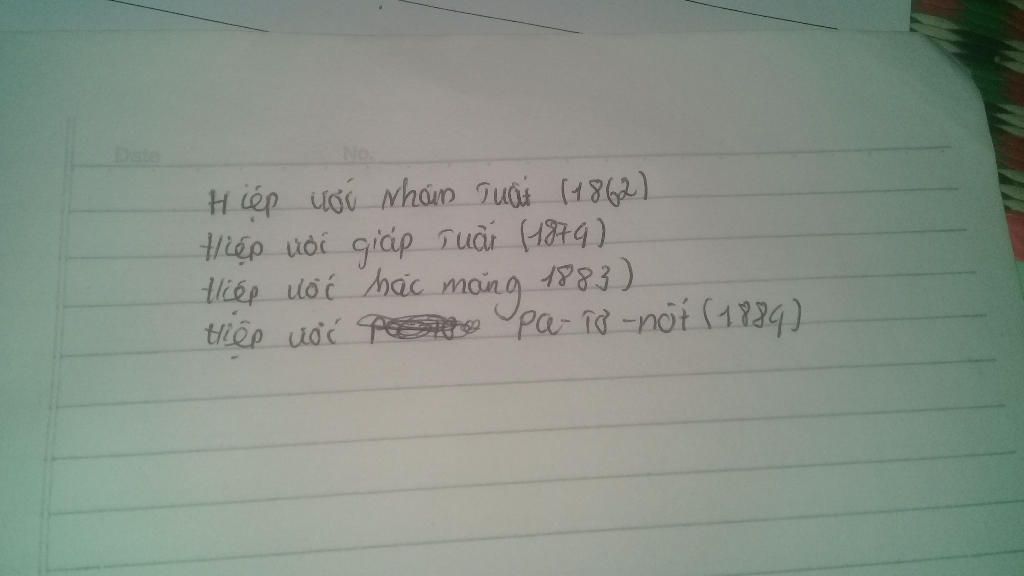 Date No.
Hiệp ước Nhâm Tuất (1862)
Hiệp ước giáp Tuất (1874)
Hiệp ước hác măng 1883)
Hiệp ước pa-tơ-nốt (1884)